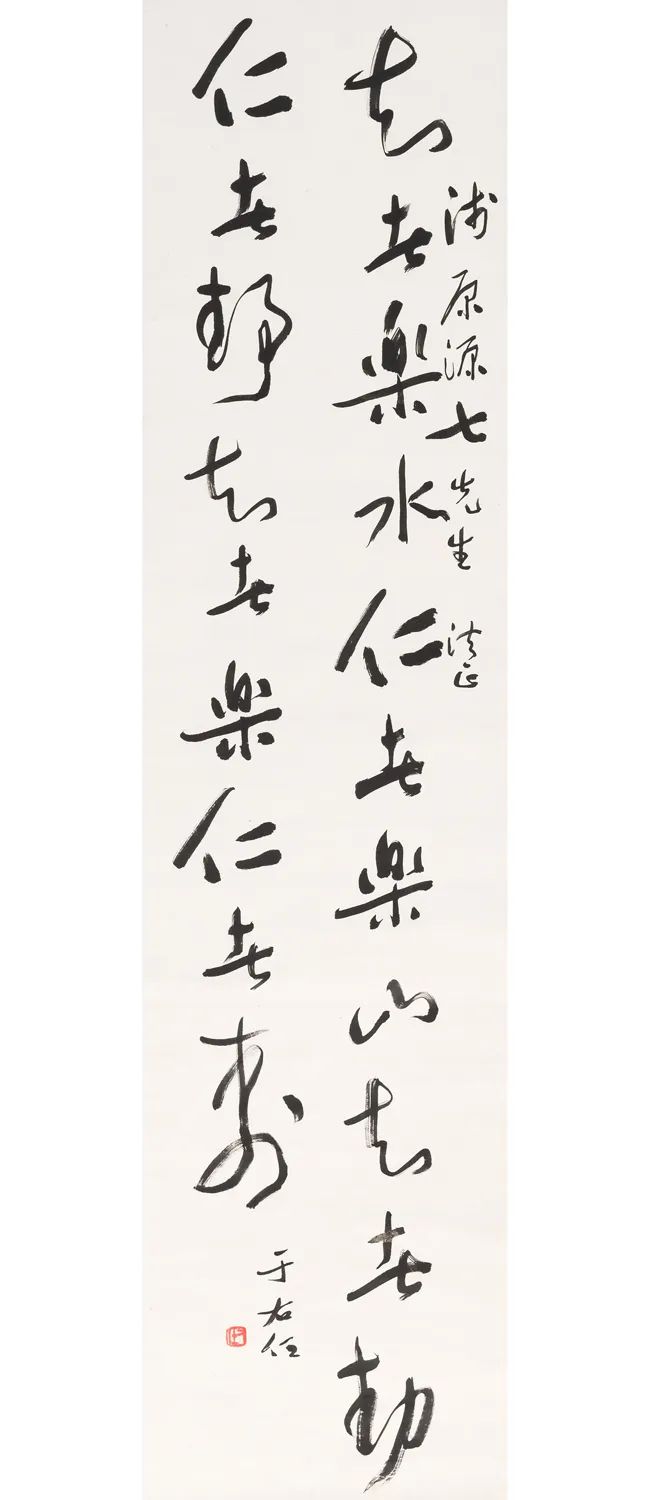 知者樂水仁者樂山知者動
浅原源七先生 法正
仁者靜知者樂仁者壽
于右任